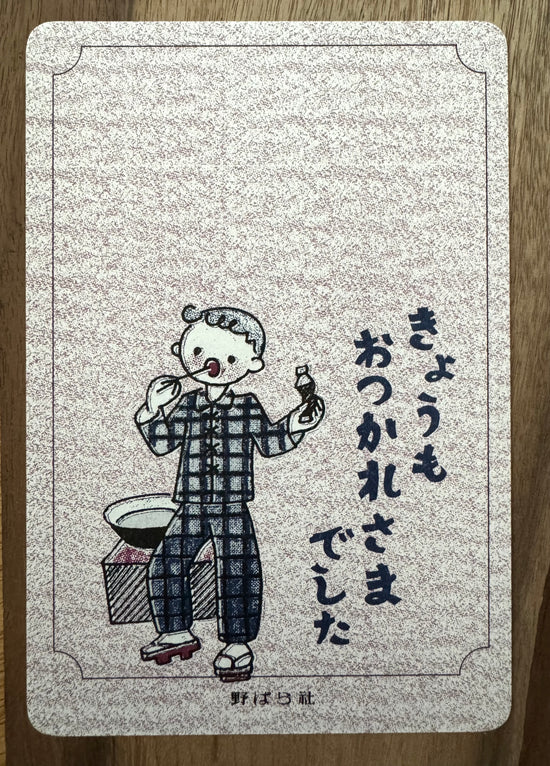 きょうも
おつかれさま
でした
野ばら社